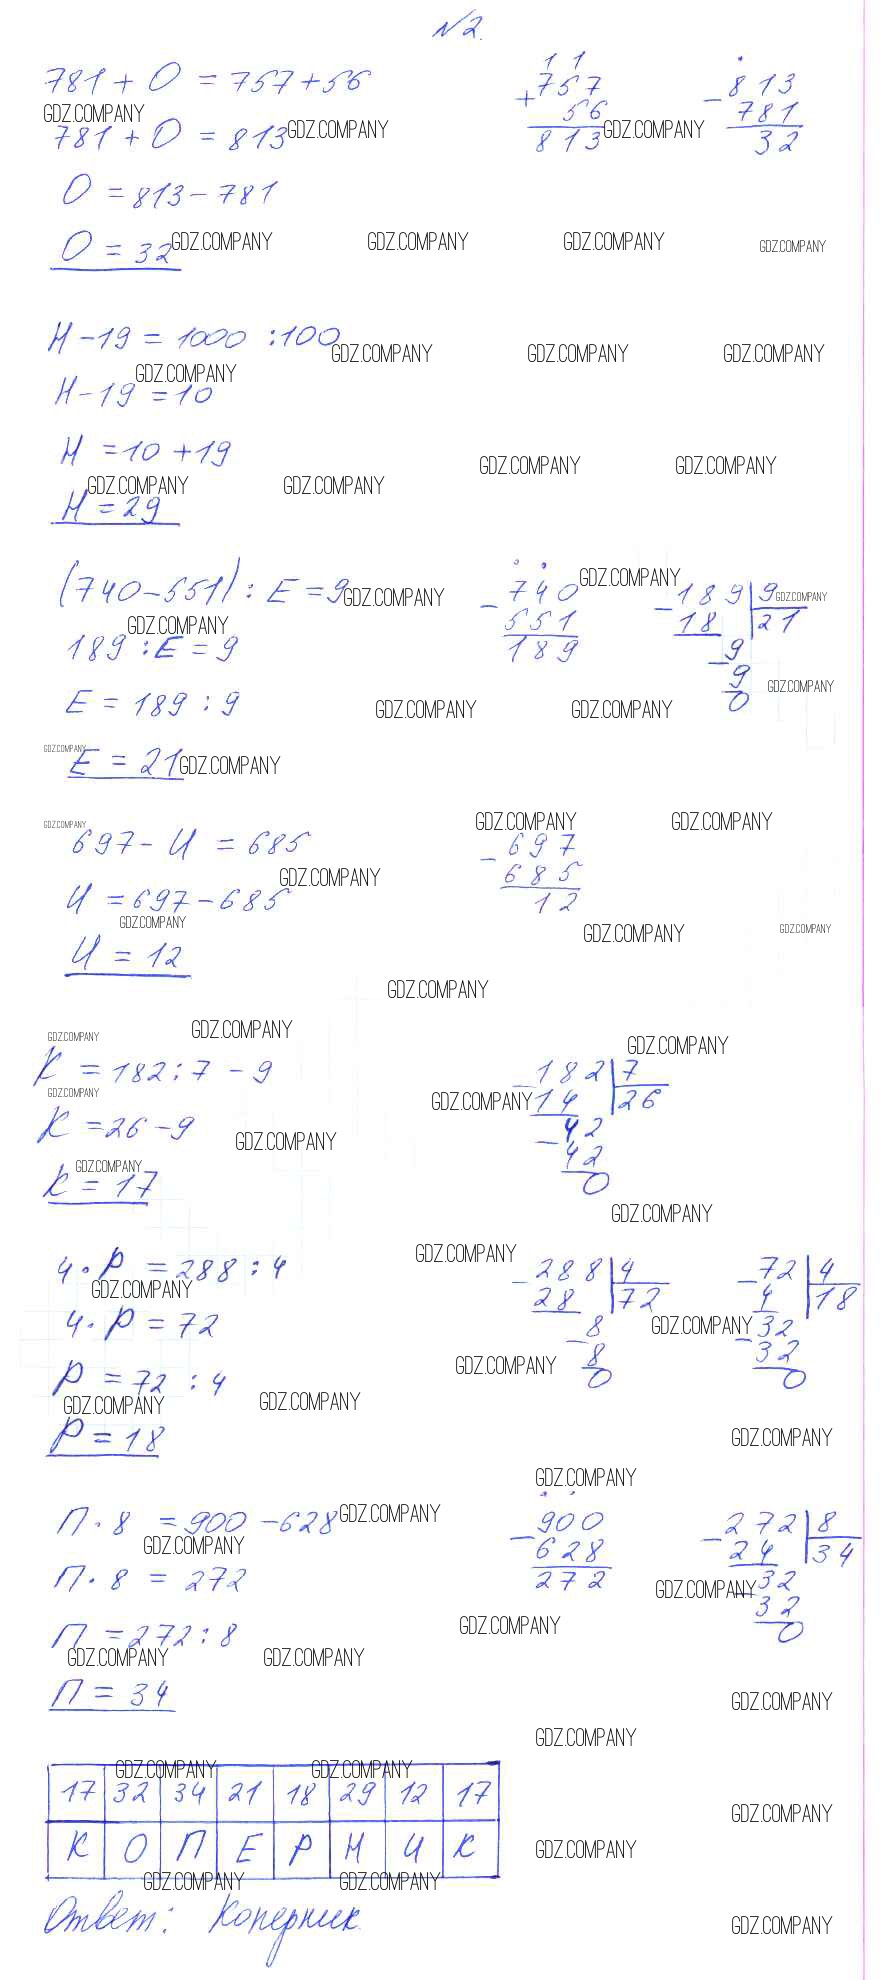 №2.
781 + О = 757 + 56
781 + О = 813
О = 813 - 781
О = 32
11
+ 757
56
813
- 813
781
32
Н - 19 = 1000 : 100
Н - 19 = 10
Н = 10 + 19
Н = 29
(740 - 551) : Е = 9
189 : Е = 9
Е = 189 : 9
Е = 21
- 740
551
189
- 189 | 9
18 | 21
- 9
9
0
697 - И = 685
И = 697 - 685
И = 12
- 697
685
12
К = 182 : 7 - 9
К = 26 - 9
К = 17
- 182 | 7
14 | 26
- 42
42
0
4 · Р = 288 : 4
4 · Р = 72
Р = 72 : 4
Р = 18
- 288 | 4
28 | 72
- 8
8
0
- 72 | 4
4 | 18
- 32
32
0
П · 8 = 900 - 628
П · 8 = 272
П = 272 : 8
П = 34
- 900
628
272
- 272 | 8
24 | 34
- 32
32
0
17 32 34 21 18 29 12 17
К О П Е Р Н И К
Ответ: Коперник.
GDZ.COMPANY